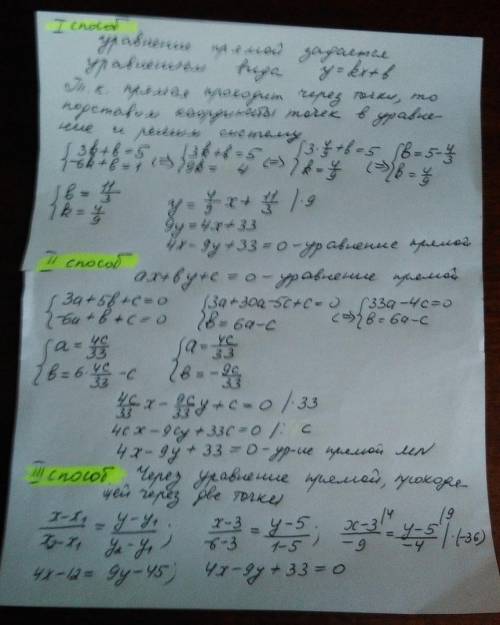 I способ
уравнение прямой задаётся
уравнением вида y=kx+b
Т.к. прямая проходит через точки, то
подставим координаты точек в уравне-
ние и решим систему
{3k+b=5 {-6k+b=1 (=> {3k+b=5 {9k= 4 (=> {3·4/9+b=5 {k=4/9 (=> {b=5-4/3 {k=4/9
{b=11/3 {k=4/9 y=4/9 x+11/3 |·9
9y=4x+33
4x-9y+33=0 - уравнение прямой
II способ
ax+by+c=0 - уравнение прямой
{3a+5b+c=0 {-6a+b+c=0 {3a+30a-5c+c=0 {b=6a-c (=> {33a-4c=0 {b=6a-c
{a=4c/33 {b=6·4c/33-c {a=4c/33 {b=-9c/33
4c/33 x - 9c/33 y + c = 0 |·33
4cx-9cy+33c=0 |: c
4x-9y+33=0 - ур-ие прямой MN
III способ Через уравнение прямой, проходя-
щей через две точки
x-x1/x2-x1 = y-y1/y2-y1; x-3/-6-3 = y-5/1-5; x-3/-9 |4 = y-5/-4 |9 |·(-36)
4x-12=9y-45; 4x-9y+33=0